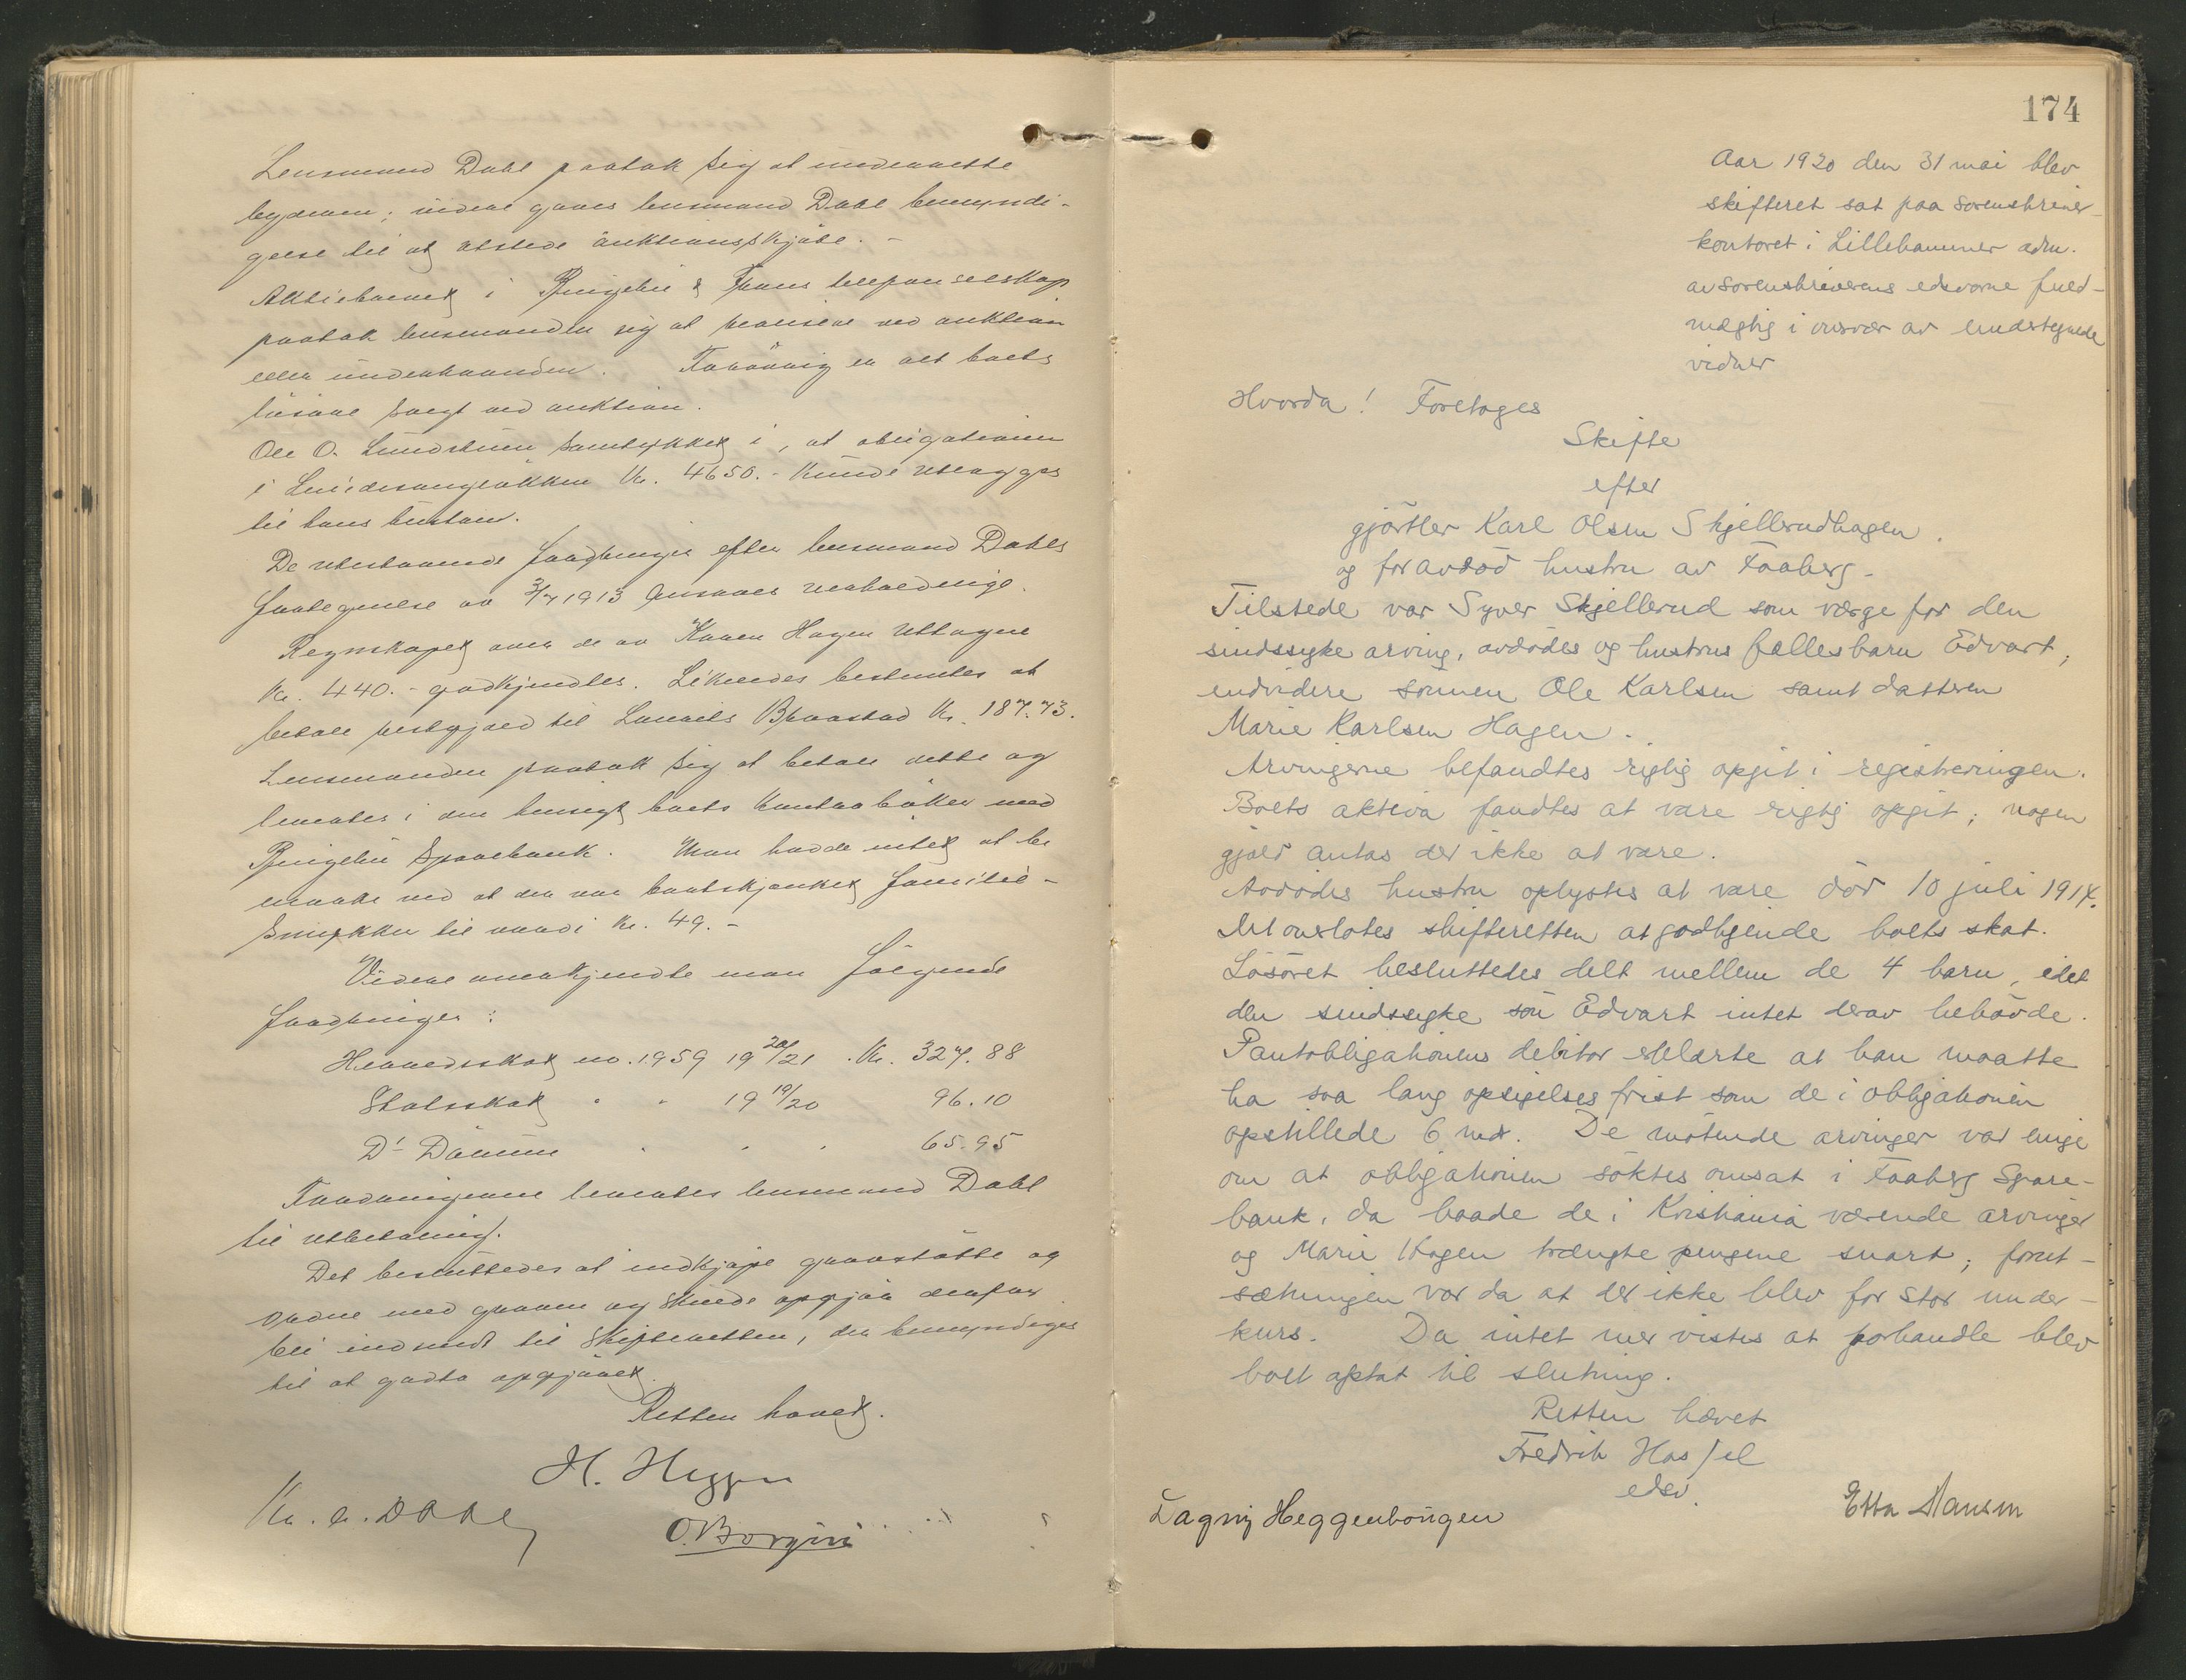 Lensmand Dahl paatok sig at underrette
byderen; videre gaves lensmand Dahl bemyndi-
gelse til at utstede auktionsskjöte. -
Aktiebrevet i Ringebu & Frons telefonselskap
paatok lensmanden sig at realisere ved auktion
eller underhaanden. Forövrig er alt boets
lösöre solgt ved auktion.
Ole O. Lundstuen samtykket i, at obligationen
i Kr. 4650.- kunde utlægges
til hans hustru.
De utestaaende fordringer efter lensmand Dahls
fortegnelse av 3/7 1913 ansaaes uerholdelige.
Regnskapet over de av Karen Hagen uttagne
Kr. 440.- godkjendtes. Likeledes bestemtes at
betale Braastad Kr. 187.73.
Lensmanden paatok sig at betale dette og
leveredes i den hensigt boets kontrabøker med
Ringebu Sparebank. Man hadde intet at be
merke ved at der var bortskjænket familie-
smykker til værdi Kr. 49.-
Videre anerkjendte man følgende
fordringer:
Herredsskat no. 1959 19 20/21 . Kr. 327.88
Statsskat " " 19 19/20 96.10
Do Domum " " " 65.95
Fordringerne leveredes lensmand Dahl
til utbetaling.
Det besluttedes at indkjøpe gravstøtte og
ordne med graven og skulde opgjør derfor
bli indsendt til skifteretten, der bemyndiges
til at godta opgjøret.
Retten hævet.
H. Heggen
Kr. A. Dahl
O. Borgen
174
Aar 1920 den 31 mai blev
skifteret sat paa sorenskriver-
kontoret i Lillehammer adm.
av sorenskriverens edsvorne fuld-
mægtig i overvær av undertegnede
vidner
Hvorda! Foretoges
Skifte
efter
gjörtler Karl Olsen Skjellerudhagen
og foravdöd hustru av Faaberg.
Tilstede var Syver Skjellerud som værge for den
sindssyke arving, avdödes og hustrus fællesbarn Edvart,
endvidere sönnen Ole Karlsen samt datteren
Marie Karlsen Hagen.
Arvingerne befandtes rigtig opgit i registreringen.
Boets aktiva fandtes at være rigtig opgit; nogen
gjæld antas der ikke at være.
Avdödes hustru oplystes at være död 10 juli 1914.
Det overlotes skifteretten at godkjende boets skat.
Lösöret besluttedes delt mellem de 4 barn, idet
den sindssyke sön Edvart intet derav behövde.
Pantobligationens debitor erklærte at han maatte
ha saa lang opsigelsesfrist som de i obligationen
opstillede 6 md. De mötende arvinger var enige
om at obligationen söktes omsat i Faaberg Spare-
bank, da baade de i Kristiania værende arvinger
og Marie Hagen trængte pengene snart; forut-
sætningen var da at der ikke blev for stor under-
kurs. Da intet mer vistes at forhandle blev
boet optat til slutning.
Retten hævet
Fredrik Hassel
edsv.
Dagny Heggenhougen
Etta Hansen